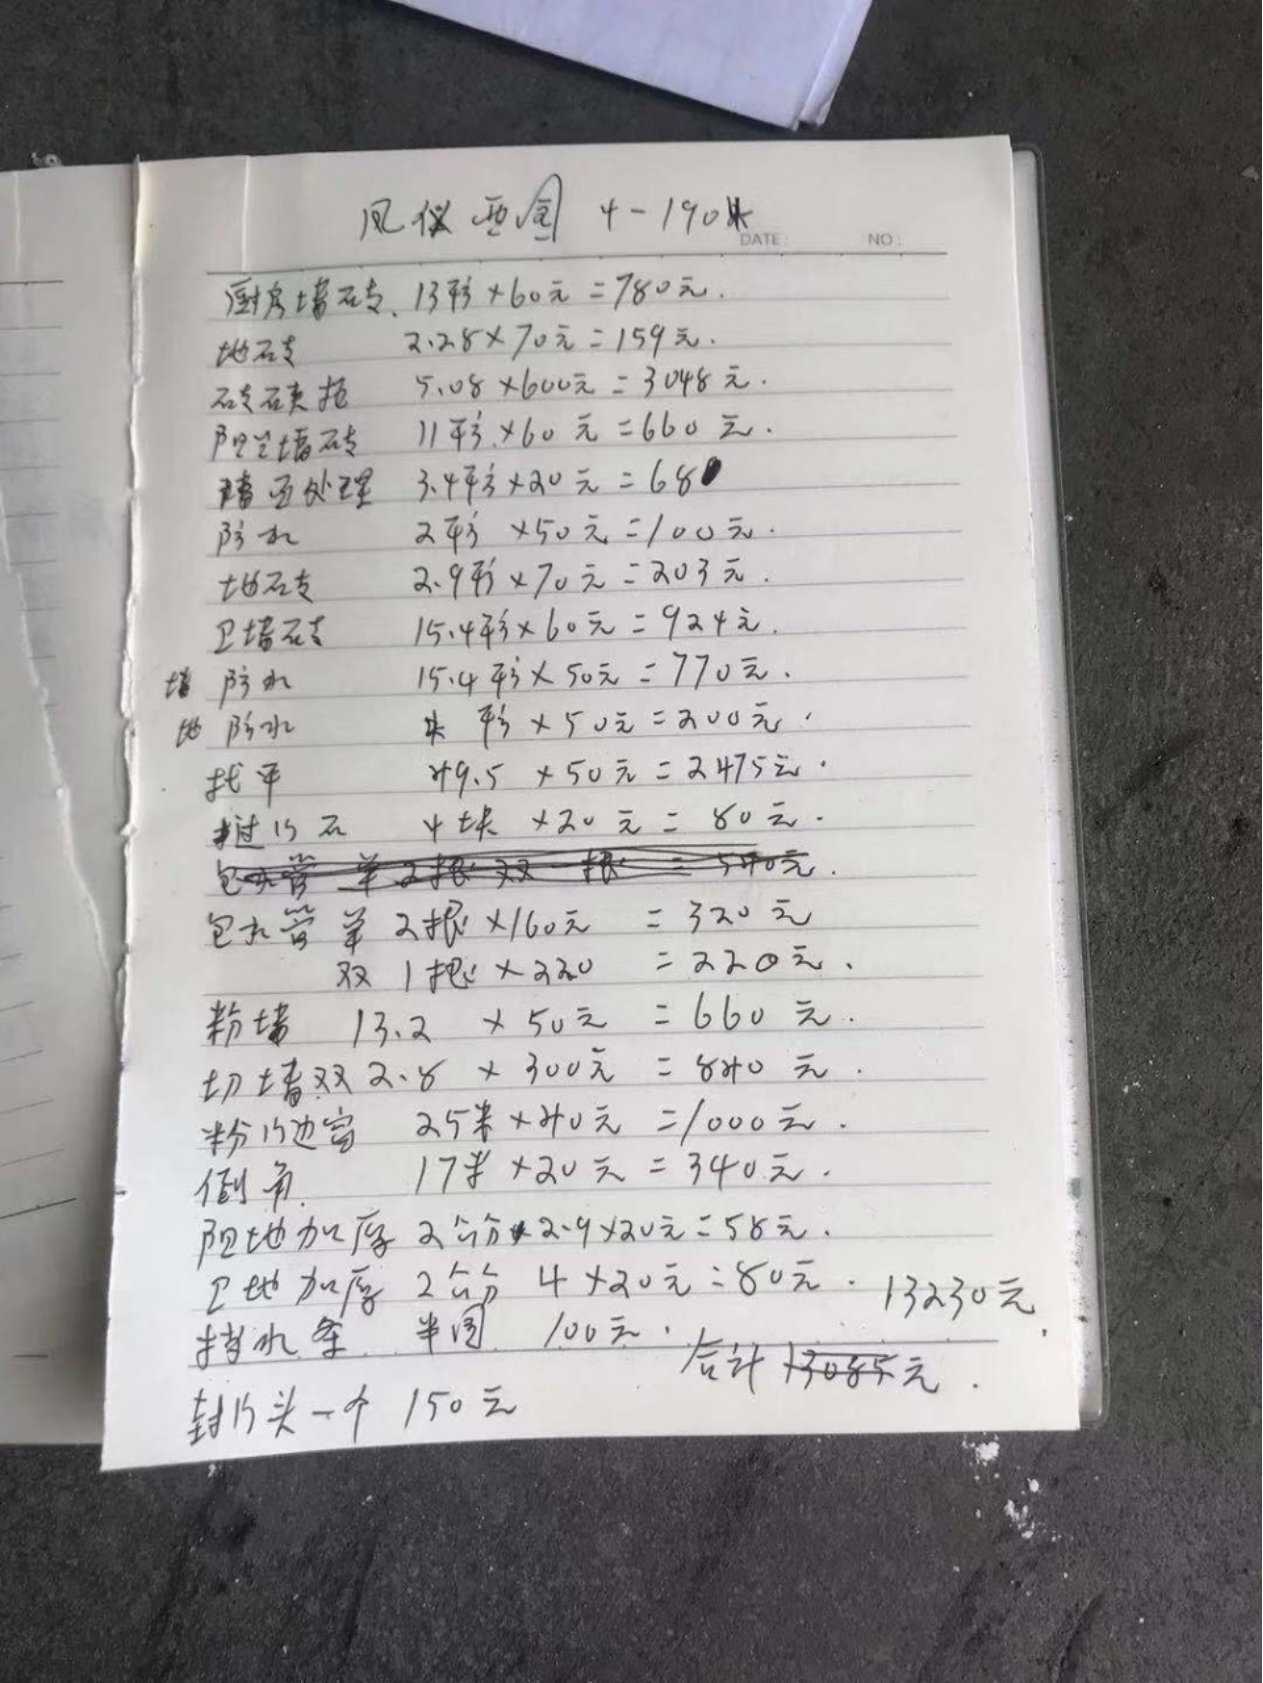 凤仪西园 4-1904
DATE: NO:
厨房墙砖. 13平方×60元=780元.
地砖 2.28×70元=159元.
砖砖夹 5.08×600元=3048元.
阳台墙砖 11平方×60元=660元.
墙面处理 3.4平方×20元=68
防水 2平方×50元=100元.
地砖 2.9平方×70元=203元.
卫墙砖 15.4平方×60元=924元.
墙 防水 15.4平方×50元=770元.
地 防水 4平方×50元=200元.
找平 49.5×50元=2475元.
过门石 4块×20元=80元.
包水管 单2根 双一根=540元.
包水管 单2根×160元=320元
双1根×220=220元.
粉墙 13.2×50元=660元.
切墙双2.8×300元=840元.
粉门边窗 25米×40元=1000元.
倒角. 17米×20元=340元.
阳地加厚 2公分 2.9×20元=58元.
卫地加厚 2公分 4×20元=80元. 13230元.
挡水条 半圆 100元.
合计 13085元.
封门头一个 150元